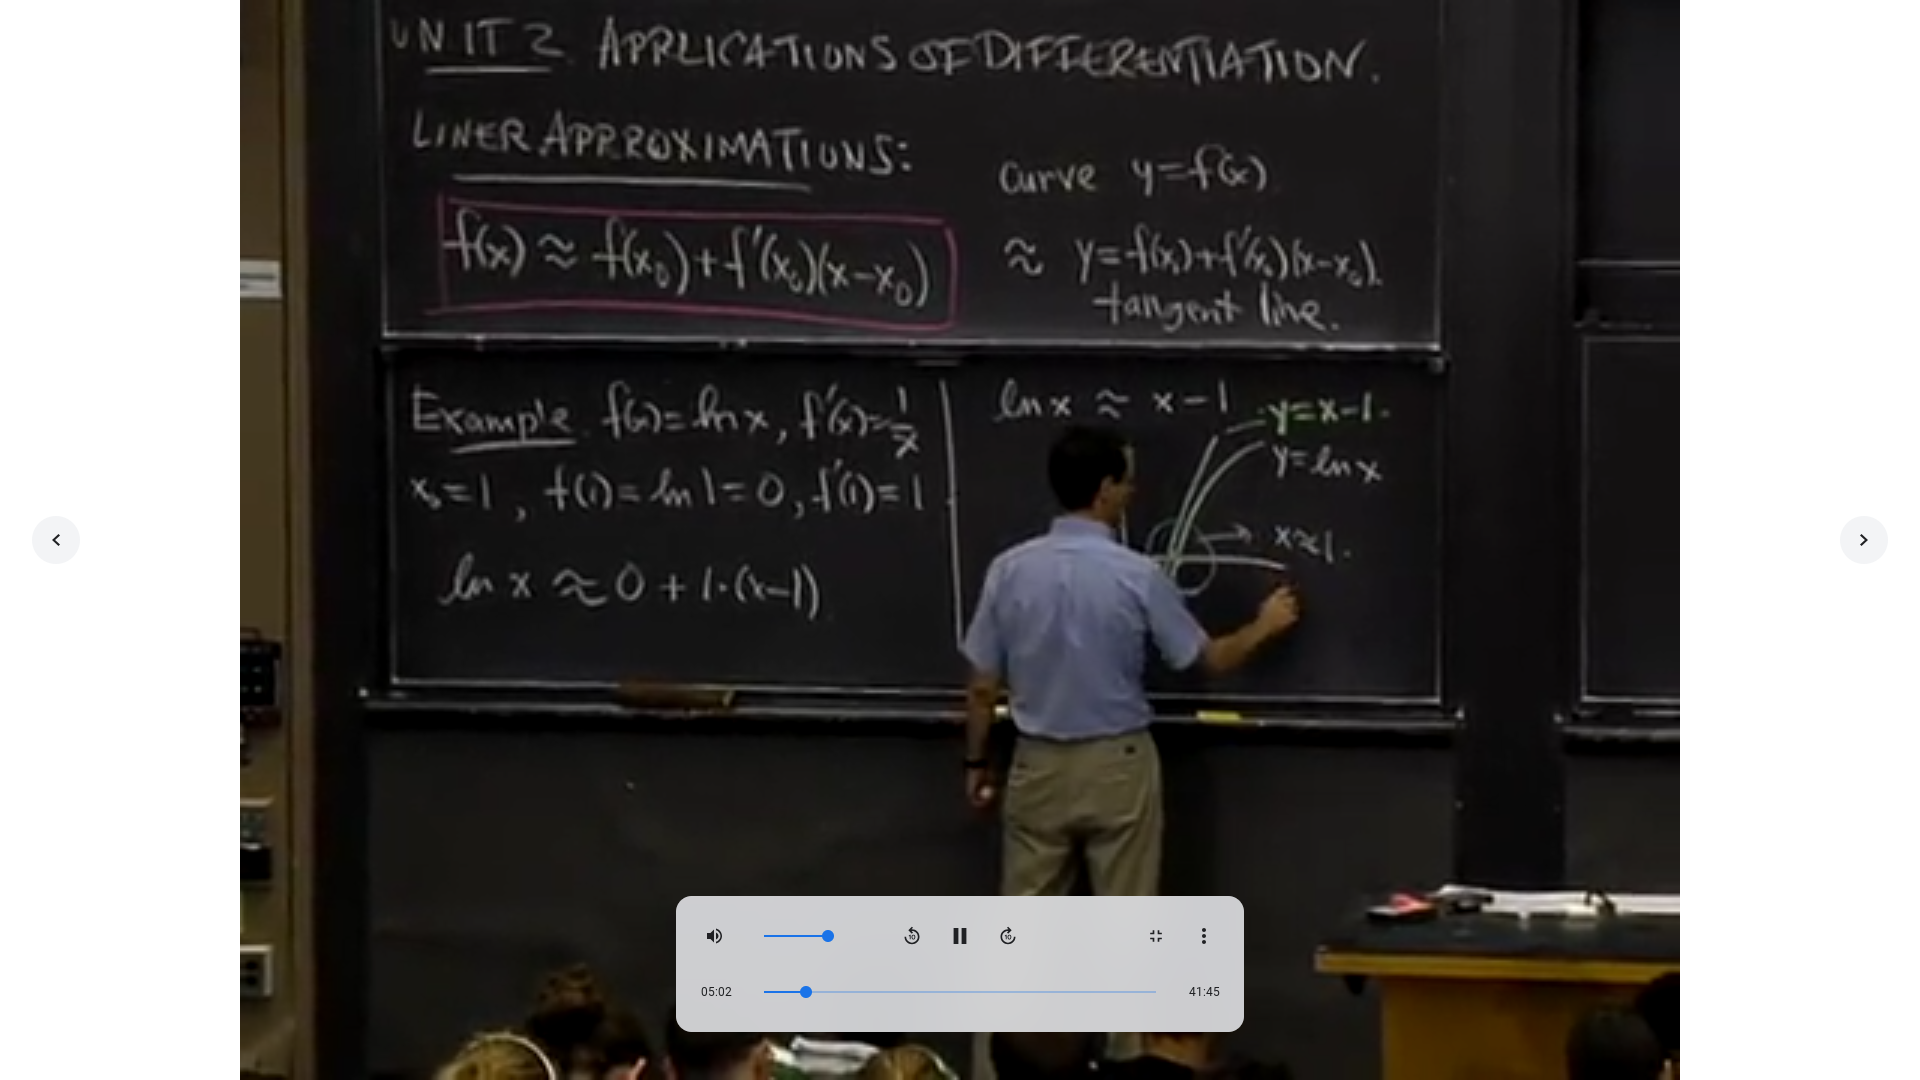 UNIT 2 APPLICATIONS OF DIFFERENTIATION.
LINER APPROXIMATIONS:
f(x) ≈ f(x₀)+f'(x₀)(x-x₀)
curve y=f(x)
≈ y=f(x₀)+f'(x₀)(x-x₀).
tangent line.
Example f(x)=ln x, f'(x)=1/x
x₀=1, f(1)=ln 1=0, f'(1)=1
ln x ≈ 0 + 1·(x-1)
ln x ≈ x-1
y=x-1.
y=ln x
x≈1.
10
10
05:02
41:45